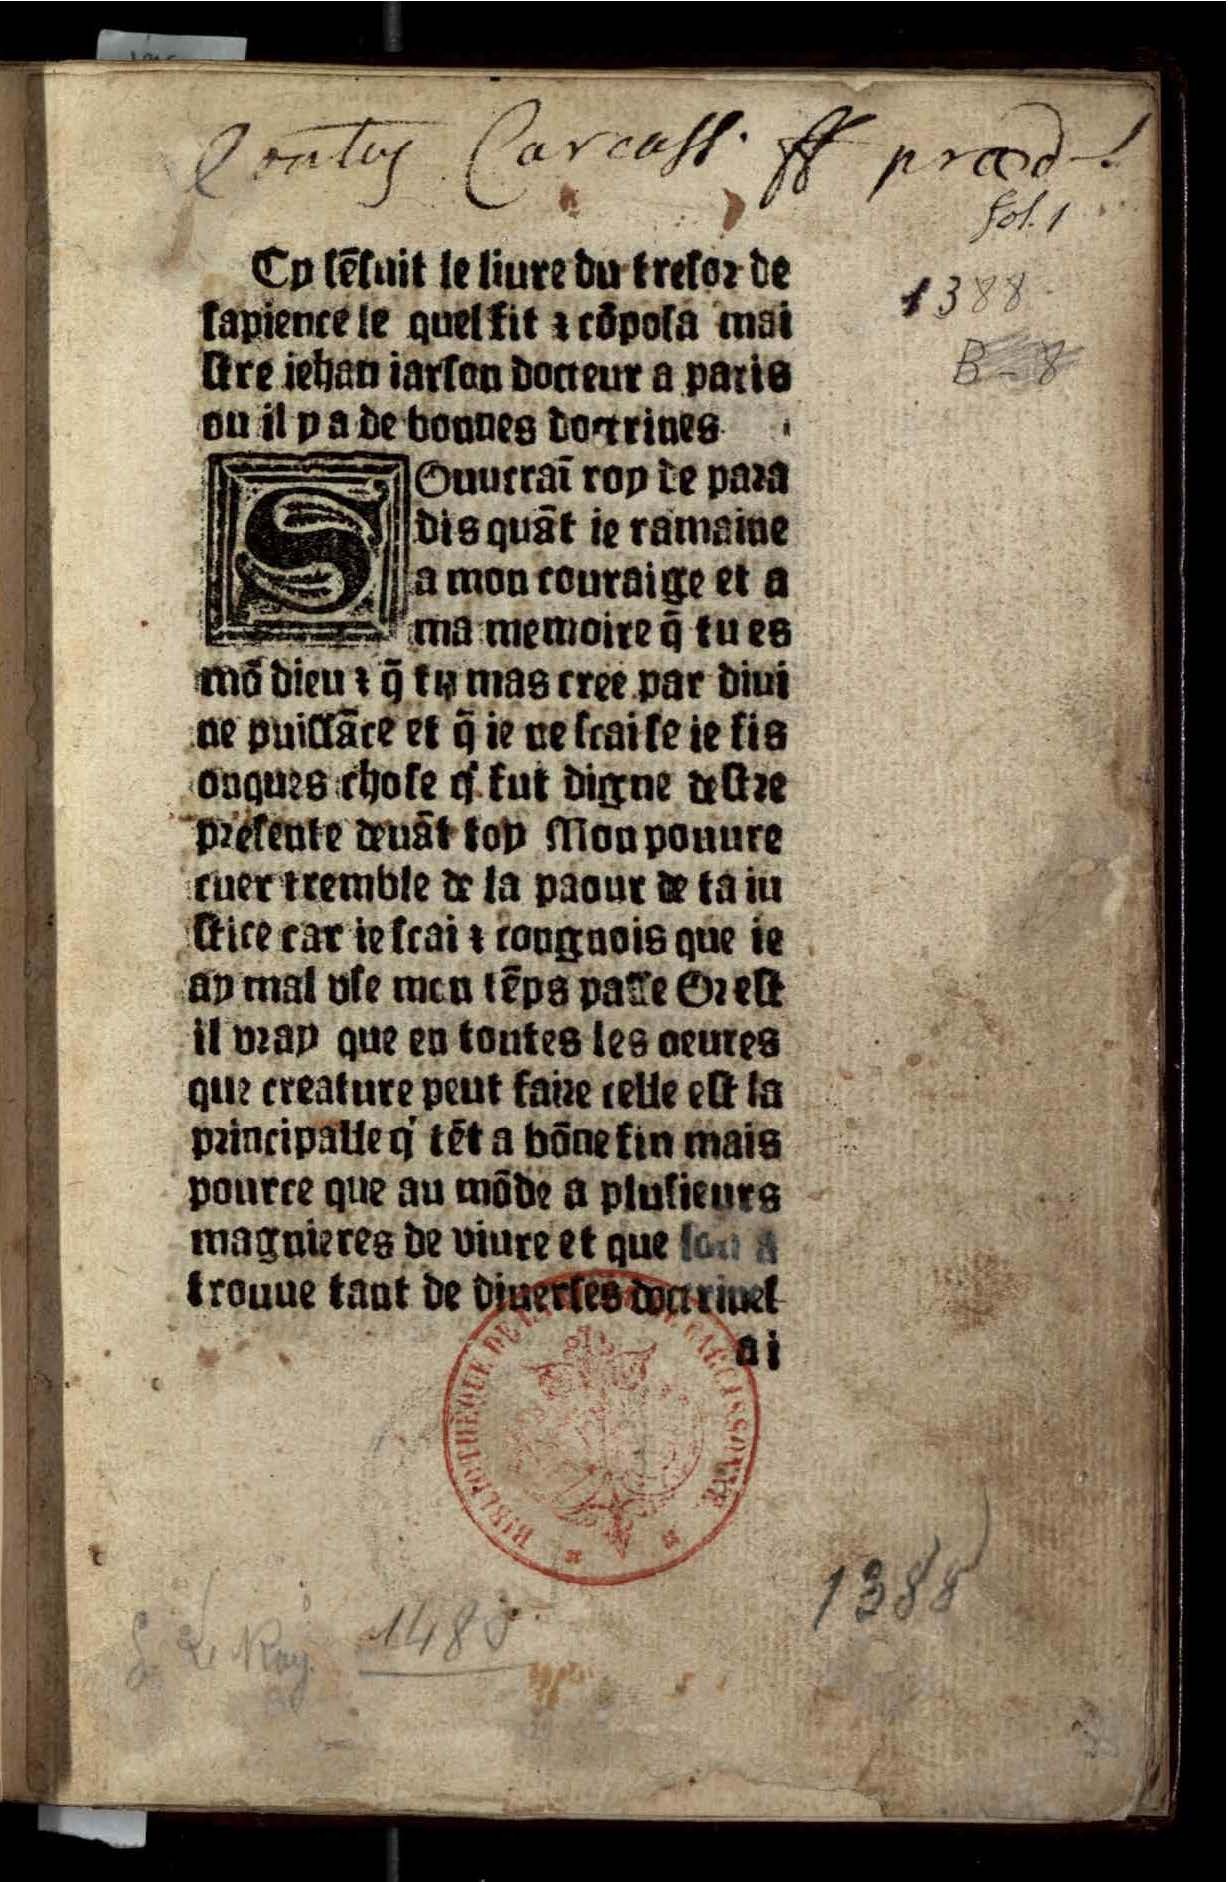 Conᵗus Carcass. ff præd.
fol. 1
1388
B-8
Cy sẽsuit le liure du tresor de
sapience le quel fit ⁊ cõposa mai
stre iehan iarson docteur a paris
ou il y a de bonnes doctrines
SOuueraĩ roy de para
dis quãt ie ramaine
a mon couraige et a
ma memoire q̃ tu es
mõ dieu ⁊ q̃ tu mas cree par diui
ne puissãce et q̃ ie ne scai se ie fis
onques chose q' fut digne destre
presente deuãt toy Mon pouure
cuer tremble de la paour de ta iu
stice car ie scai ⁊ congnois que ie
ay mal vse mon tẽps passe Or est
il vray que en toutes les oeures
que creature peut faire celle est la
principalle q' tẽt a bõne fin mais
pource que au mõde a plusieurs
magnieres de viure et que lon a
trouue tant de diuerses doctrines
a i
BIBLIOTHEQUE DE LA VILLE DE CARCASSONNE
1388
G. Le Roy. 1488